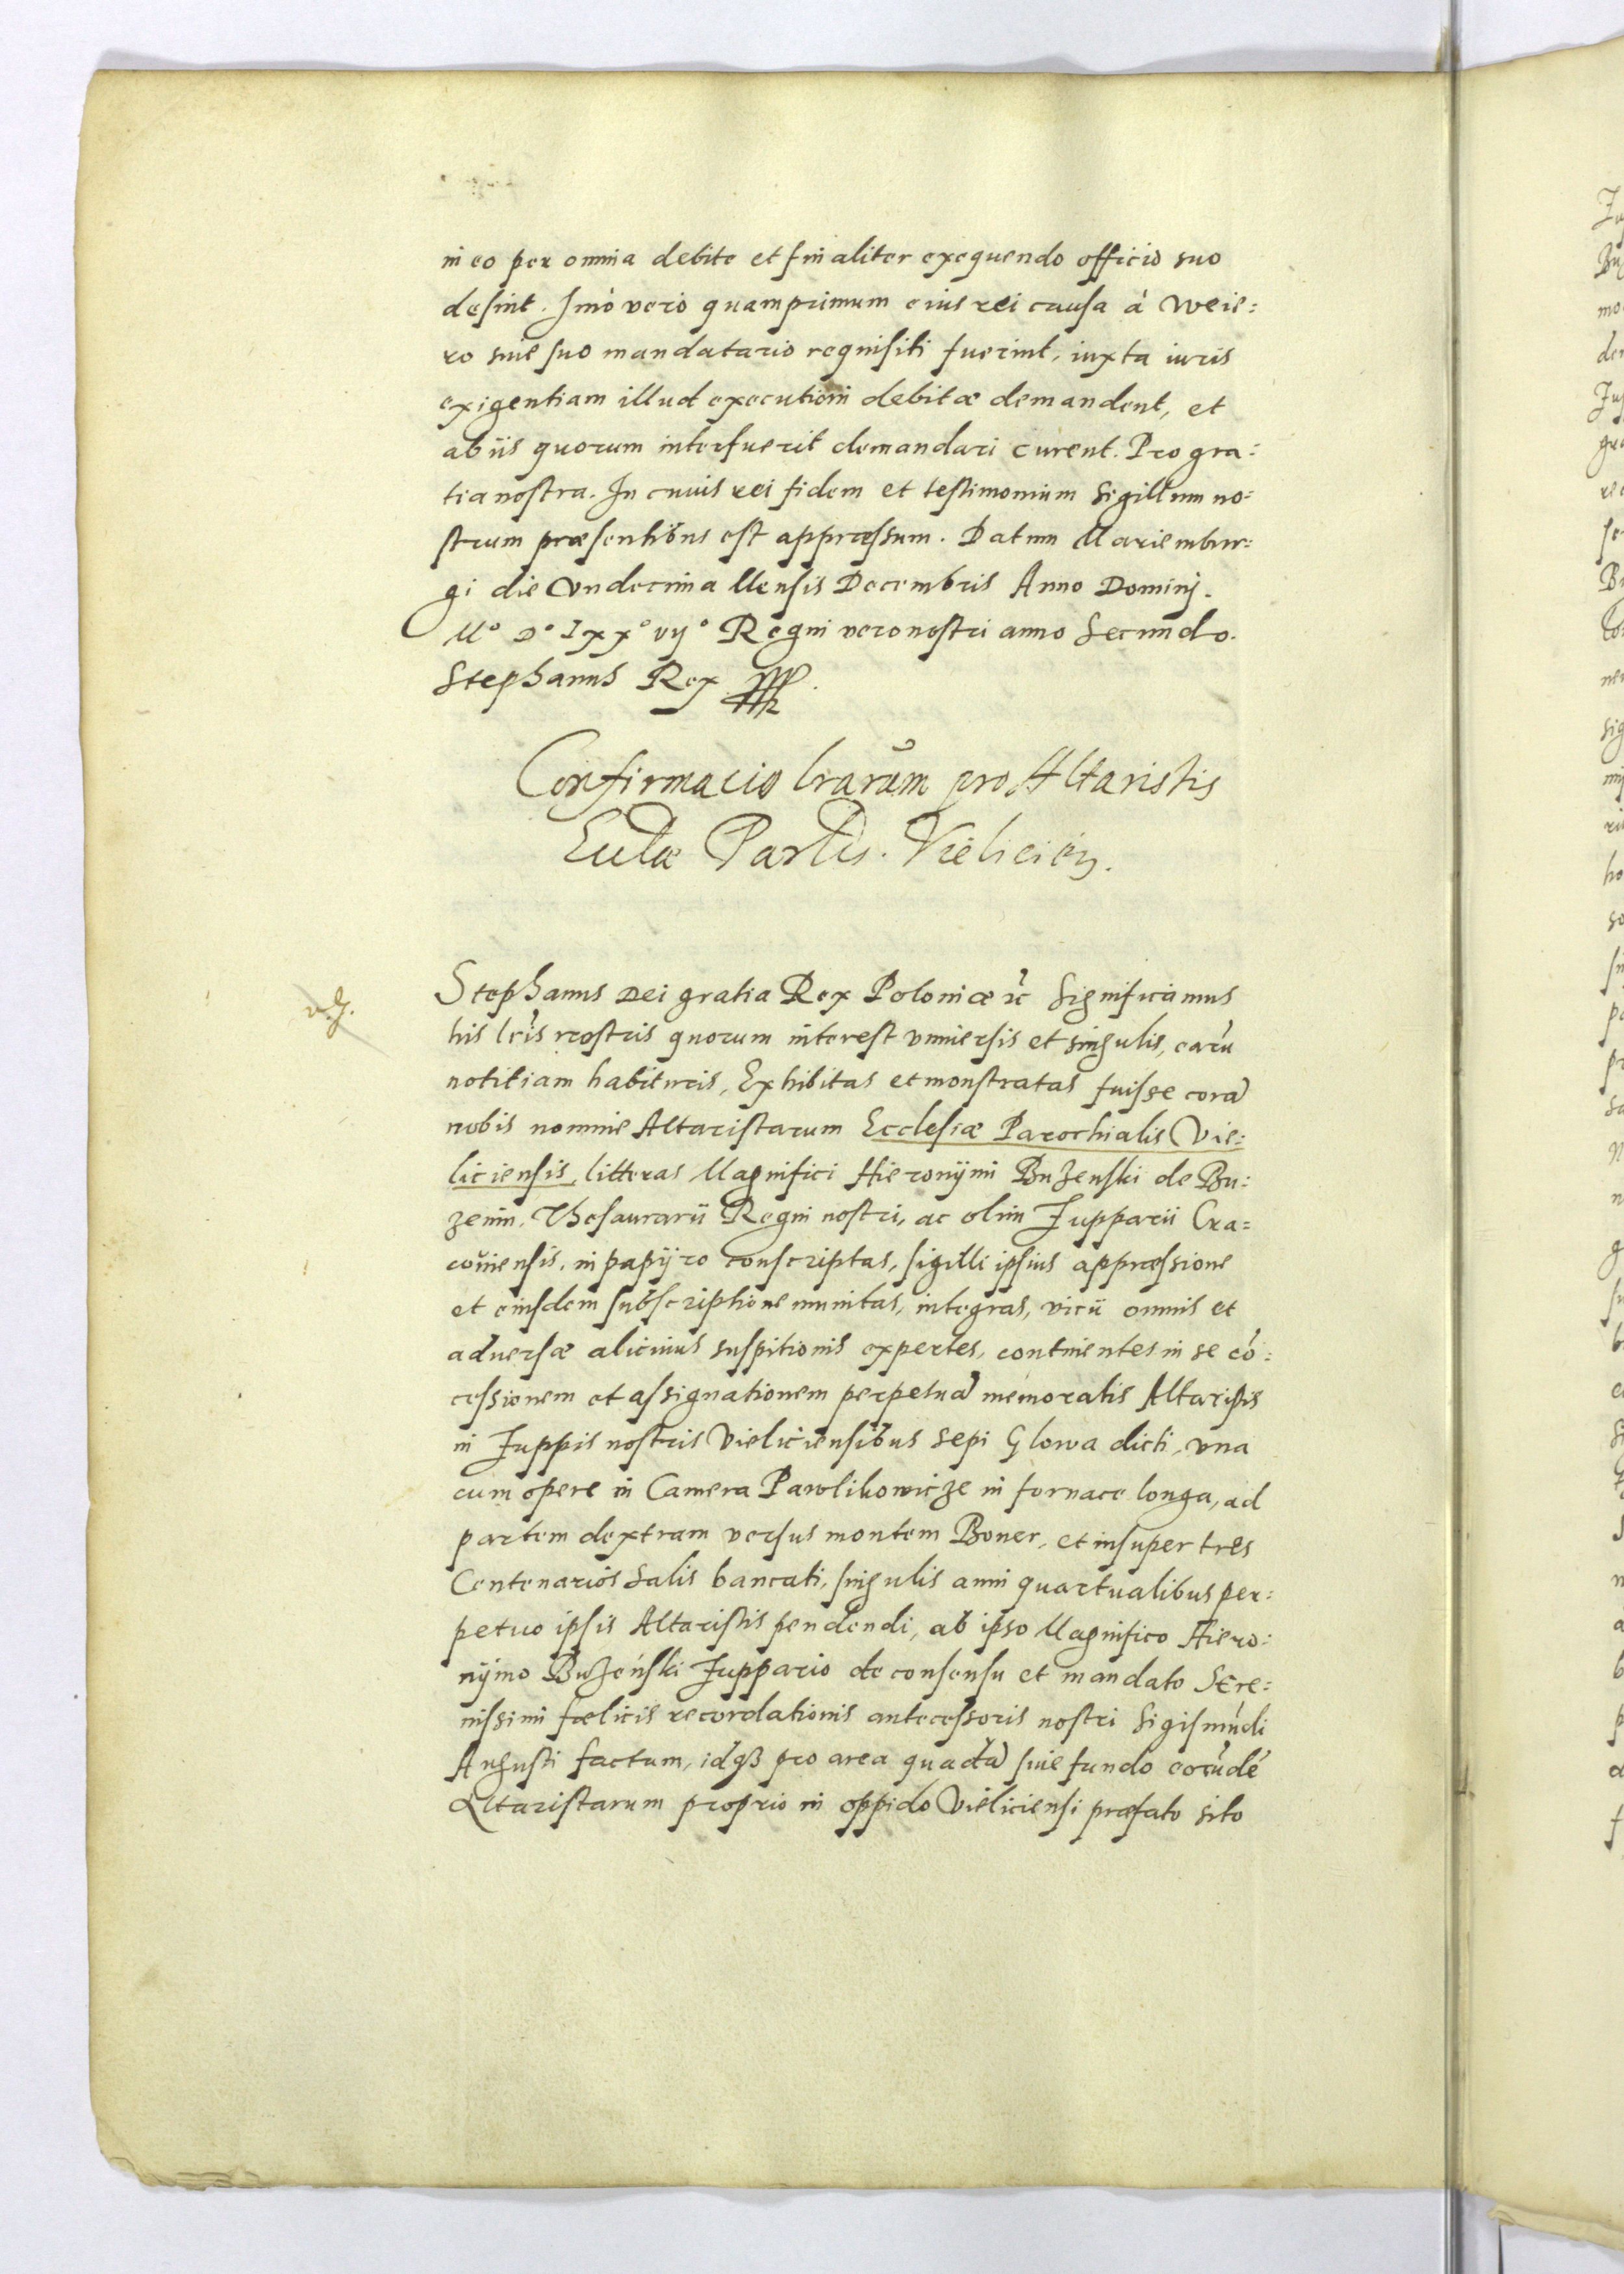 in eo per omnia debite et finaliter exequendo officio suo
desint. Imò vero quamprimum eius rei causa à Weie:
ro siue suo mandatario requisiti fuerint, iuxta iuris
exigentiam illud executioni debitæ demandent, et
ab iis quorum interfuerit demandari curent. Pro gra:
tia nostra. In cuius rei fidem et testimonium Sigillum no:
strum præsentibus est appressum. Datum Mariembur:
gi die Vndecima Mensis Decembris Anno Dominj.
Mº Dº Lxxº vijº Regni vero nostri anno Secundo.
Stephanus Rex
Confirmacio lrarum pro Altaristis
Eccłæ Parlis. Vielicień.
Stephanus Dei gratia Rex Poloniæ ꝛc Significamus
his lris nostris quorum interest vniuersis et singulis, earū
notitiam habituris, Exhibitas et monstratas fuisse corā
nobis nomine Altaristarum Ecclesiæ Parochialis Vie:
liciensis, litteras Magnifici Hieronÿmi Buzenski de Bu:
zenin, Thesaurarii Regni nostri, ac olim Zupparii Cra=
couiensis, in papÿro conscriptas, sigilli ipsius appressione
et eiusdem subscriptione munitas, integras, vicii omnis et
aduersæ alicuius suspitionis expertes, continentes in se cō:
cessionem et assignationem perpetuā memoratis Altaristis
in Zuppis nostris Vieliciensibus sepi Glowa dicti, vna
cum opere in Camera Pawlikowicze in fornace longa, ad
partem dextram versus montem Boner, et insuper tres
Centenarios Salis bancati, singulis anni quartualibus per:
petuo ipsis Altaristis pendendi, ab ipso Magnifico Hiero:
nÿmo Buzeński Zuppario de consensu et mandato Sere:
nissimi fœlicis recordationis antecessoris nostri Sigismūdi
Augusti factum, idqȝ pro area quadā siue fundo eorūdē
Altaristarum proprio in oppido Vieliciensi præfato sito